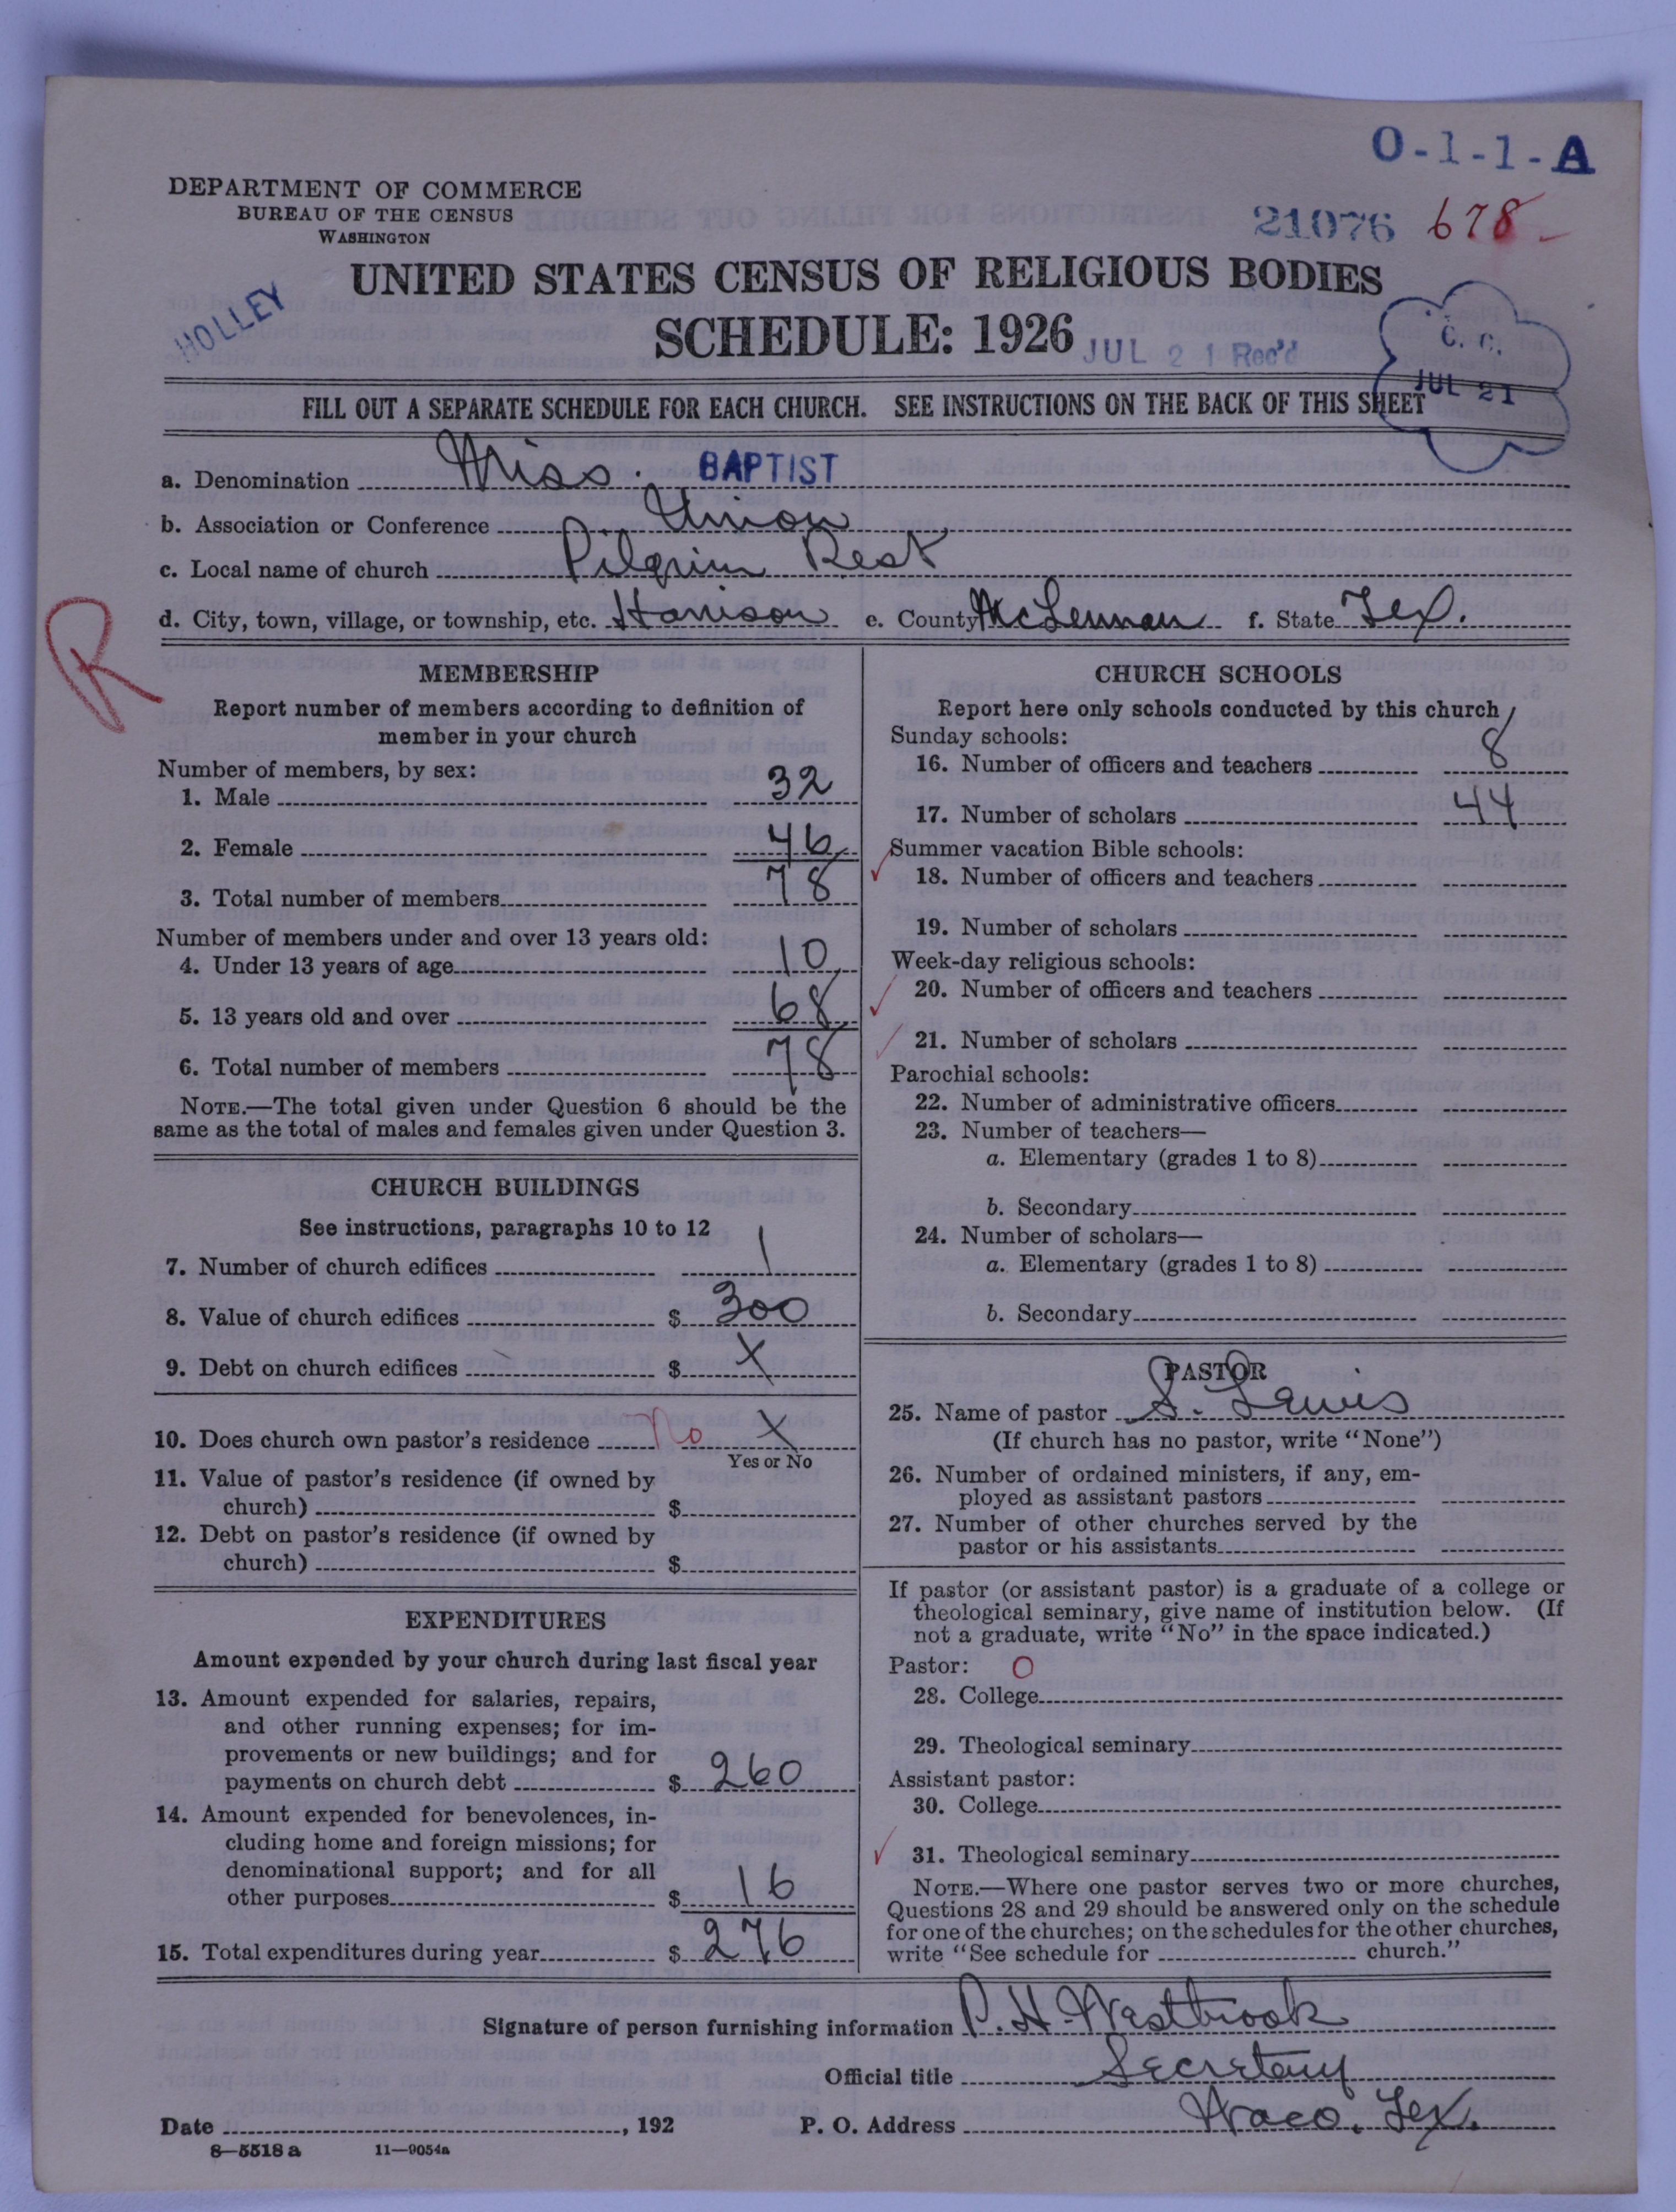 O-1-1-A
DEPARTMENT OF COMMERCE
BUREAU OF THE CENSUS
WASHINGTON
21076 678
UNITED STATES CENSUS OF RELIGIOUS BODIES
HOLLEY
SCHEDULE: 1926
JUL 21 Rec'd
C. C.
JUL 21
FILL OUT A SEPARATE SCHEDULE FOR EACH CHURCH. SEE INSTRUCTIONS ON THE BACK OF THIS SHEET
a. Denomination Miss. BAPTIST
b. Association or Conference Union
c. Local name of church Pilgrim Rest
d. City, town, village, or township, etc. Harrison e. County McLennan f. State Tex.
R
MEMBERSHIP
Report number of members according to definition of
member in your church
Number of members, by sex:
1. Male 32
2. Female 46
3. Total number of members 78
Number of members under and over 13 years old:
4. Under 13 years of age 10
5. 13 years old and over 68
6. Total number of members 78
NOTE.—The total given under Question 6 should be the
same as the total of males and females given under Question 3.
CHURCH BUILDINGS
See instructions, paragraphs 10 to 12
7. Number of church edifices 1
8. Value of church edifices $ 300
9. Debt on church edifices $ X
10. Does church own pastor's residence No X
Yes or No
11. Value of pastor's residence (if owned by
church) $
12. Debt on pastor's residence (if owned by
church) $
EXPENDITURES
Amount expended by your church during last fiscal year
13. Amount expended for salaries, repairs,
and other running expenses; for im-
provements or new buildings; and for
payments on church debt $ 260
14. Amount expended for benevolences, in-
cluding home and foreign missions; for
denominational support; and for all
other purposes $ 16
15. Total expenditures during year $ 276
CHURCH SCHOOLS
Report here only schools conducted by this church
Sunday schools:
16. Number of officers and teachers 8
17. Number of scholars 44
Summer vacation Bible schools:
18. Number of officers and teachers
19. Number of scholars
Week-day religious schools:
20. Number of officers and teachers
21. Number of scholars
Parochial schools:
22. Number of administrative officers
23. Number of teachers—
a. Elementary (grades 1 to 8)
b. Secondary
24. Number of scholars—
a. Elementary (grades 1 to 8)
b. Secondary
PASTOR
25. Name of pastor S. Lewis
(If church has no pastor, write "None")
26. Number of ordained ministers, if any, em-
ployed as assistant pastors
27. Number of other churches served by the
pastor or his assistants
If pastor (or assistant pastor) is a graduate of a college or
theological seminary, give name of institution below. (If
not a graduate, write "No" in the space indicated.)
Pastor: O
28. College
29. Theological seminary
Assistant pastor:
30. College
31. Theological seminary
NOTE.—Where one pastor serves two or more churches,
Questions 28 and 29 should be answered only on the schedule
for one of the churches; on the schedules for the other churches,
write "See schedule for church."
Signature of person furnishing information P. H. Westbrook
Official title Secretary
Date , 192 P. O. Address Waco, Tex.
8—5518 a 11—9054a